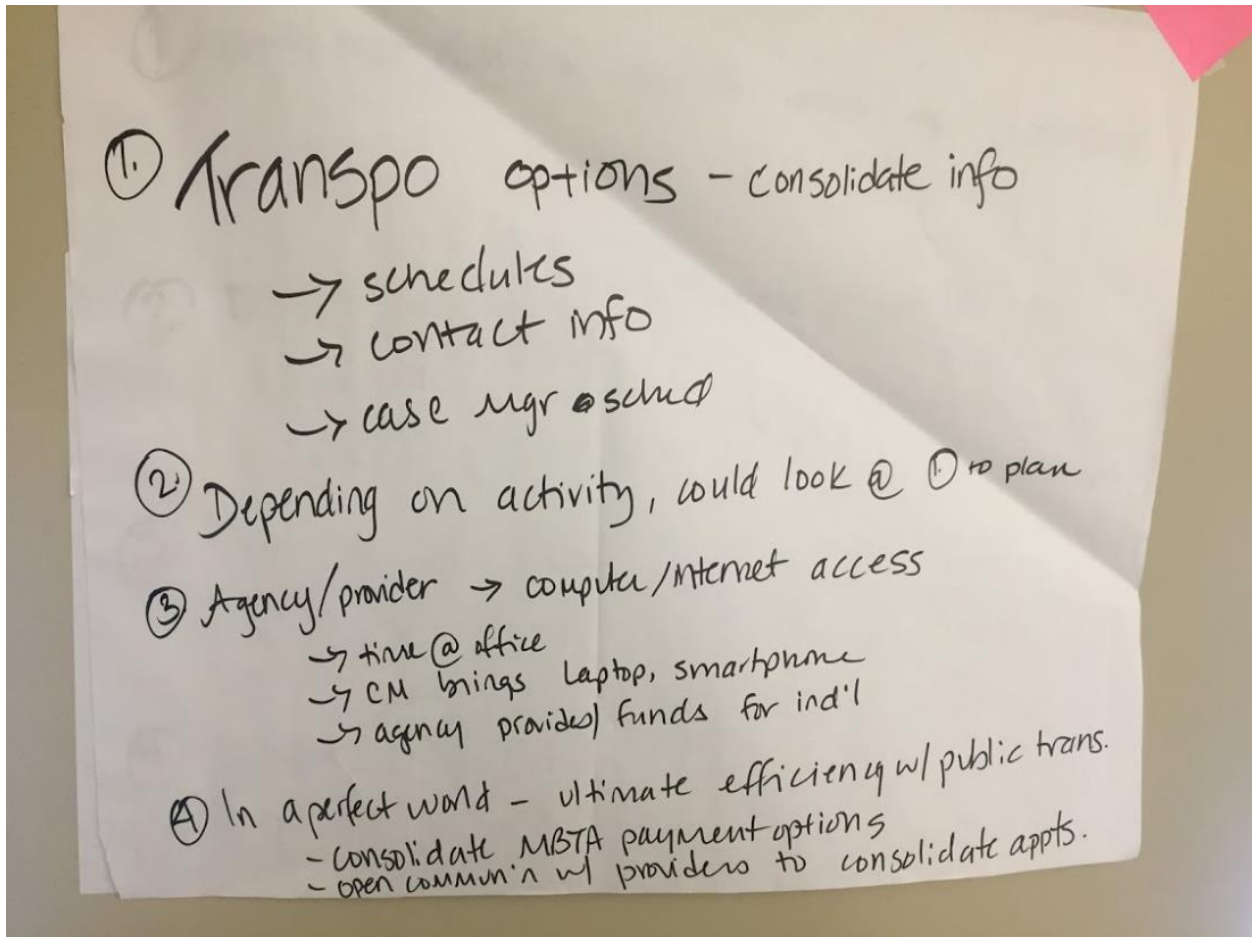 ① Transpo options - consolidate info
→ schedules
→ contact info
→ case mgr sched
② Depending on activity, could look @ ① to plan
③ Agency/provider → computer/internet access
→ time @ office
→ CM brings laptop, smartphone
→ agency provides/funds for ind'l
④ In a perfect world - ultimate efficiency w/ public trans.
- consolidate MBTA payment options
- open commun'n w/ providers to consolidate appts.